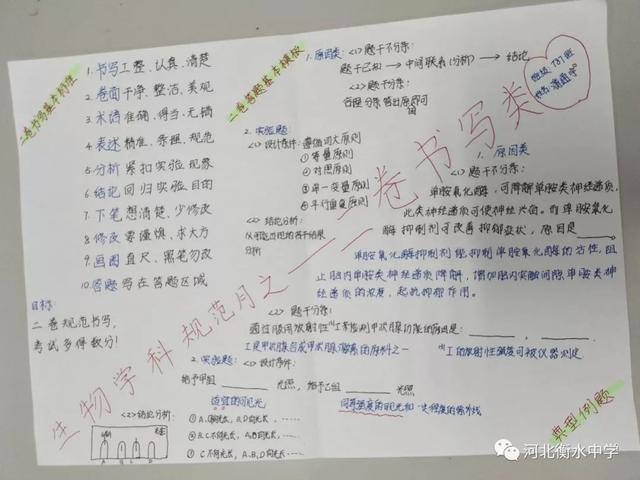 二卷书写基本特性
1. 书写工整、认真、清楚
2. 卷面干净、整洁、美观
3. 术语准确、得当、无错
4. 表述精准、条理、规范
5. 分析紧扣实验现象
6. 结论回归实验目的
7. 下笔想清楚,少修改
8. 修改要谨慎,求大方
9. 画图直尺、黑笔勿改
10. 答题写在答题区域
目标:
二卷规范书写,
考试多得数分!
二卷答题基本模板
1. 原因类: <1> 题干不分条:
题干已知 → 中间联系(分析) → 结论
<2> 题干分条:
合理分条答出原因即可
2. 实验题:
<1> 设计条件: 遵循四大原则
① 等量原则
② 对照原则
③ 单一变量原则
④ 平行重复原则
<2> 结论分析:
从可能出现的若干结果
分析
班级: 737班
生物学科规范月之——二卷书写类
1. 原因类
<1> 题干不分条:
单胺氧化酶,可降解单胺类神经递质,
此类神经递质可使神经兴奋。而单胺氧化
酶抑制剂可改善抑郁症状,原因是
单胺氧化酶抑制剂能抑制单胺氧化酶的活性,阻
止脑内单胺类神经递质降解,增加脑内突触间隙单胺类神
经递质的浓度,起抗抑郁作用。
<2> 题干分条:
适性服用放射性¹³¹I来检测甲状腺功能的原因是: ,
I是甲状腺合成甲状腺激素的原料之一 ¹³¹I的放射性强度可被仪器测定
2. 实验题: <1> 设计条件:
给予甲组 光照,给予乙组 光照
适宜的可见光 同等强度的可见光和一定强度的紫外线
<2> 结论分析:
A B C D
典型例题
河北衡水中学